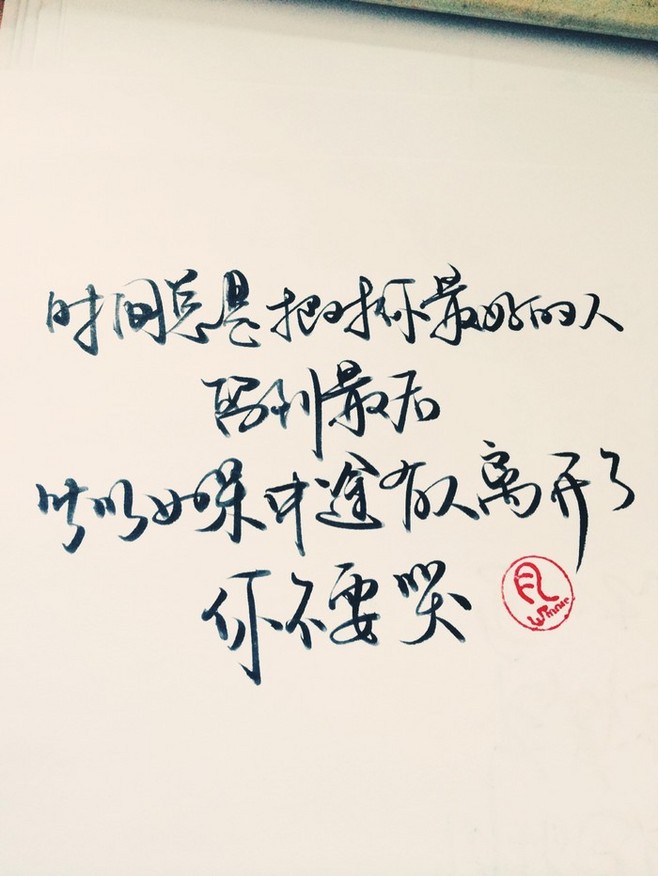 时间总是把对你最好的人
留到最后
所以如果中途有人离开了
你不要哭
Winner